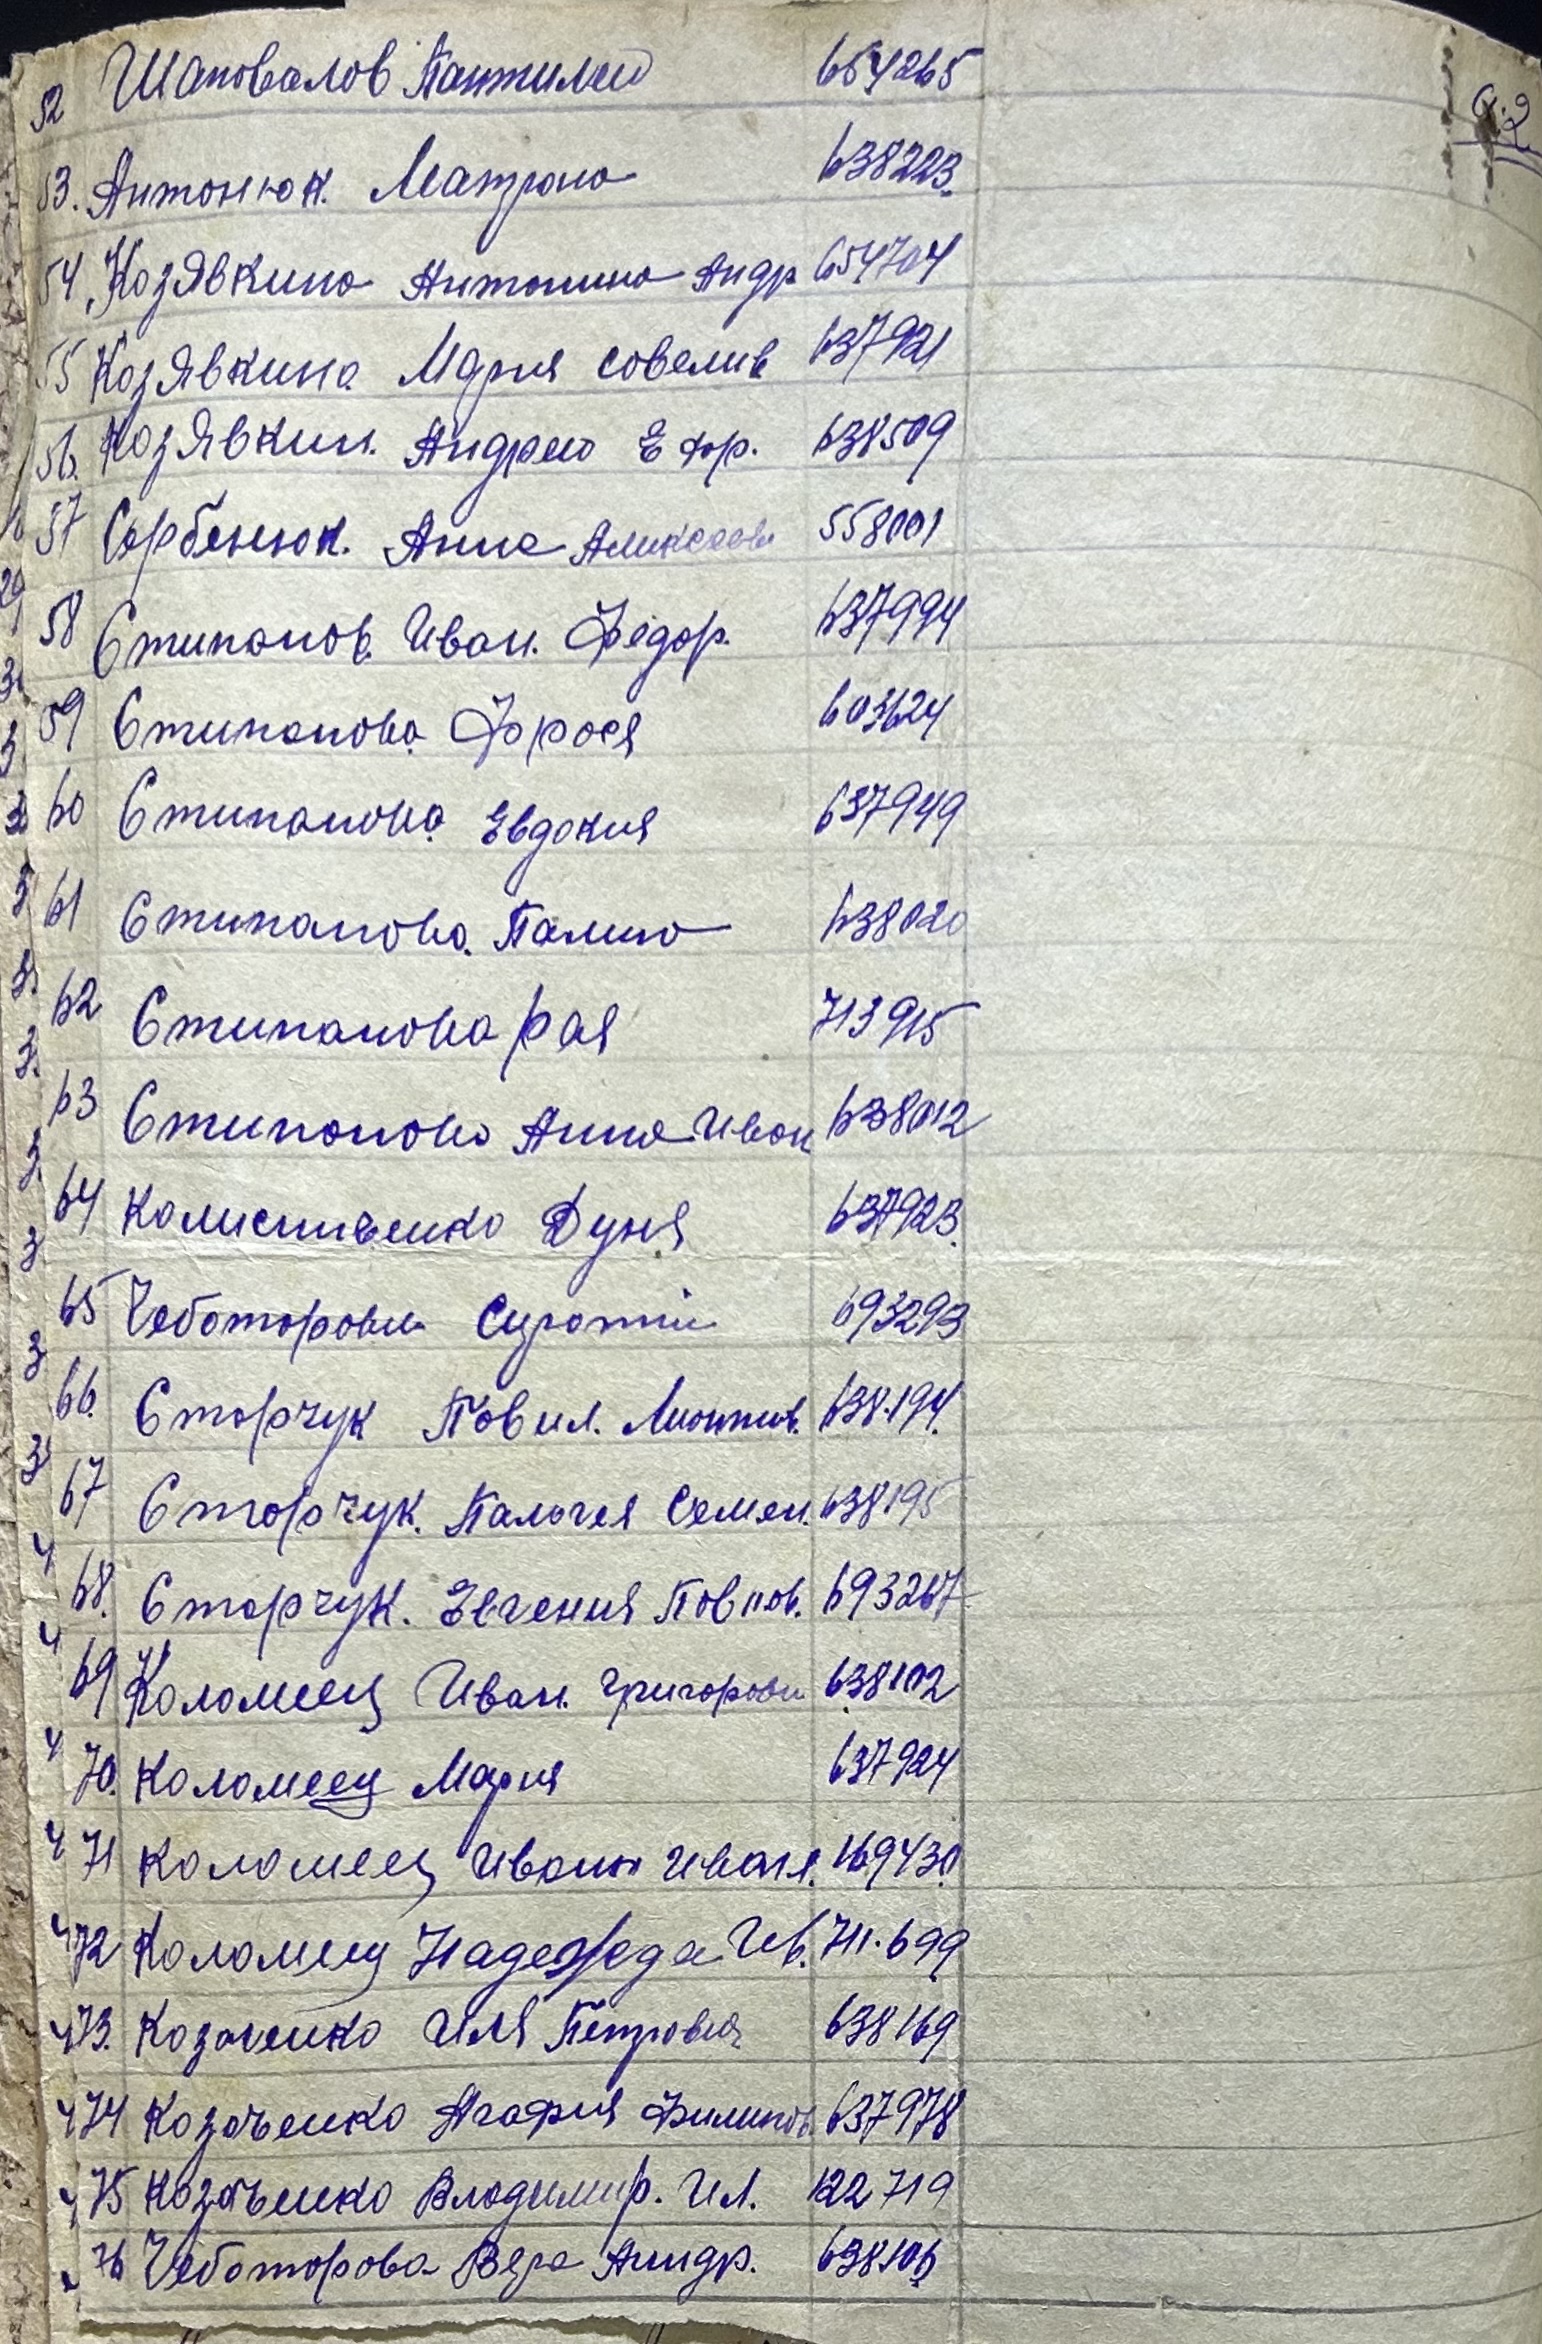 52 Шаповалов Пантилей 654265
53. Антонюк. Матрона 638223.
54 Козявкина Антонина Андр 654704
55 Козявкина Мария Совелив 637921
56. Козявкин. Андрей Ефр. 638509
57 Сербенюк. Анна Алиексеевн 558001
58 Стипанов. Иван. Фёдор. 637994
59 Стипанова Фрося 603624
60 Стипанова Евдокия 637949
61 Стипанова. Палина 638020
62 Стипанова Рая 713915
63 Стипанова Анна Иван 638012
64 Колисниченко Дуня 637923.
65 Чеботарови 693293
66. Сторчук Повил. Лионтив. 638.194.
67 Сторчук. Палагея Семен. 638195
68. Сторчук. Евгения Повлов. 693267
69 Коломеец Иван. Григорови 638102
70. Коломеец Мария 637924
71 Коломеец Ивани Иван. 169430.
72 Коломеец Надежда Ив. 711.699
73. Козаченко Иля Петрович 638169
74 Козаченко Агафия Филипов. 637978
75 Козаченко Владимир. Ил. 122719
76 Чеботорова Вера Андр. 638106